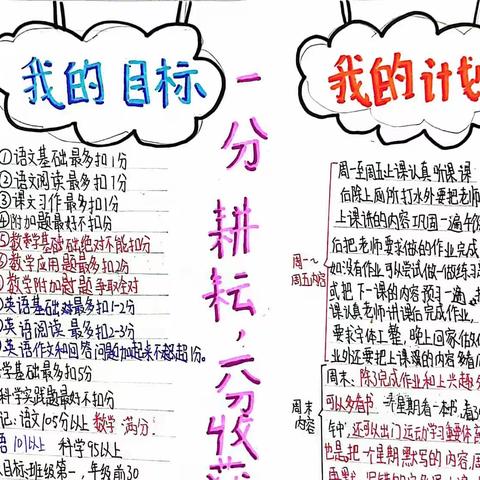 我的目标
①语文基础最多扣1分
②语文阅读最多扣1分
③课文习作最多扣1分
④附加题最好不扣分
⑤数学基础础绝对不能扣分
⑥数学应用题最多扣2分
⑦数学附加题争取全对
英语基础最多扣1-2分
英语阅读最多扣2-3分
英语作文和回答问题加起来不超超1分。
学基础最多扣5分
科学实践题最好不扣分
记:语文105分以上数学满分!
语101以上 科学95以上
目标:班级第一,年级前30
一分耕耘,一分收获
我的计划
周一~周五内容
周一至周五上课认真听课课
后除上厕所打水外要把老师
上课讲的内容巩固一遍午饭
后把老师要求做的作业完成
如没有作业可以尝试做一做练习
或把下一课的内容预习一遍
课认真老师讲课后完成作业,
要求字体工整,晚上回家做
业外还要把上课讲的内容多看
周末内容
周末:除了完成作业和上兴趣
可以多看书 一个星期看一本书,看
钟,还可以出门运动学习重要体
也是把一个星期默写的内容,